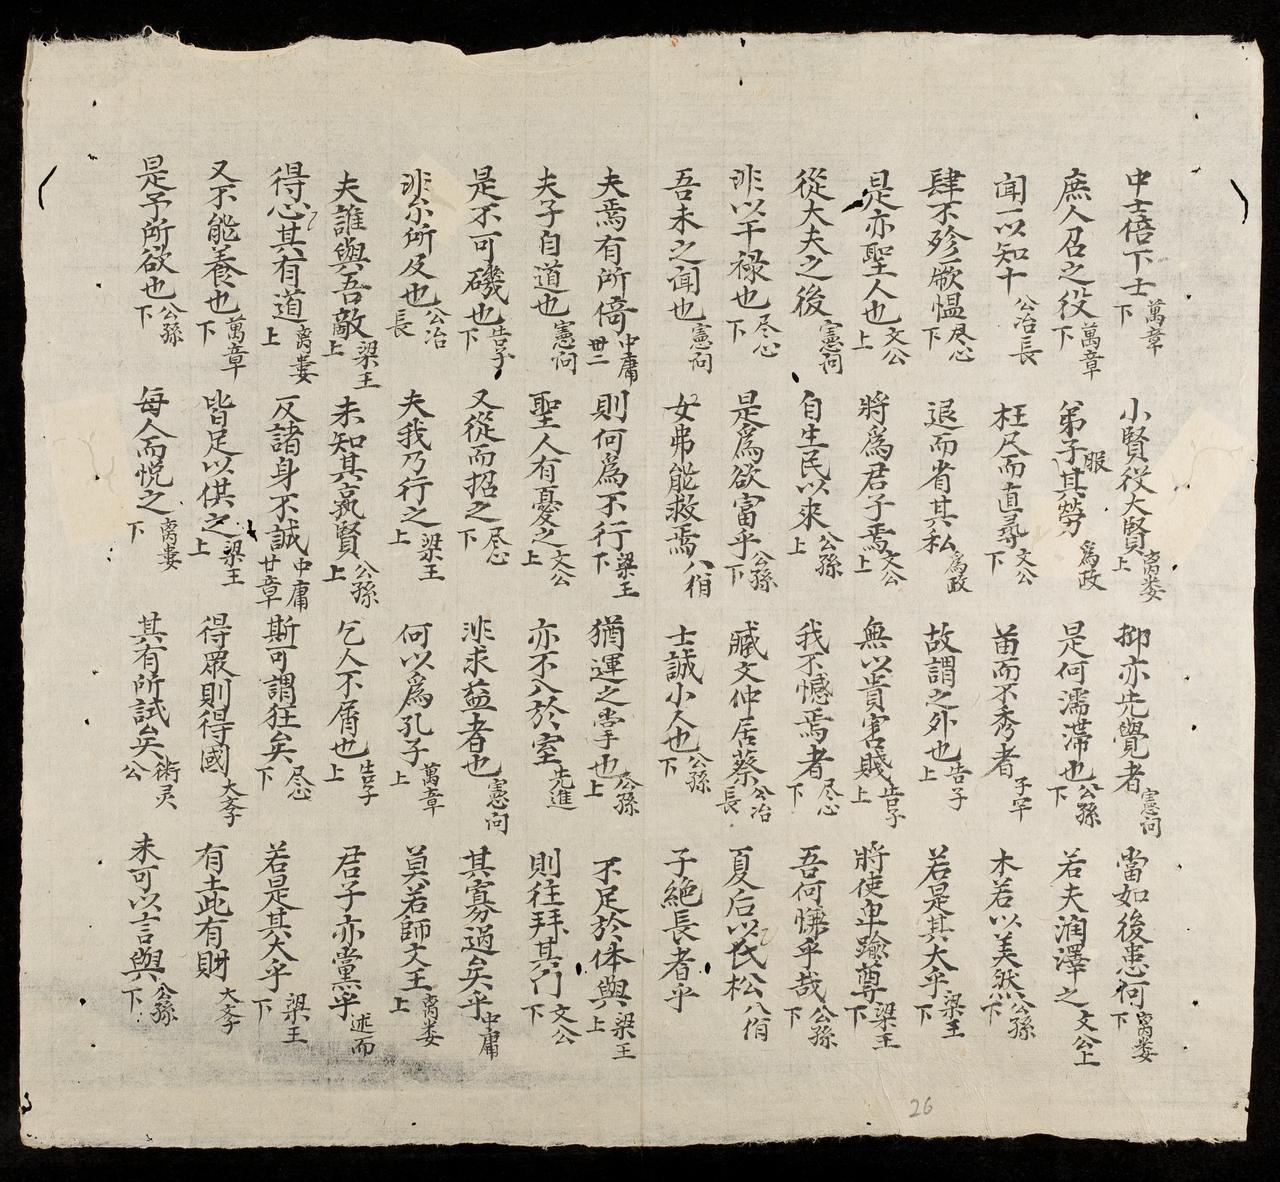 中士倍下士 萬章下 小賢役大賢 离娄上 抑亦先覺者 憲问 當如後患何 离娄下
庶人召之役 萬章下 弟子服其勞 爲政 是何濡滯也 公孫下 若夫润澤之 文公上
闻一以知十 公冶長 枉尺而直尋 文公下 苗而不秀者 子罕 木若以美然 公孫下
肆不殄厥愠 尽心下 退而省其私 爲政 故謂之外也 告子上 若是其大乎 梁王下
是亦聖人也 文公上 將爲君子焉 文公上 無以貴害賤 告子上 將使卑踰尊 梁王下
從大夫之後 憲问 自生民以來 公孫上 我不憾焉者 尽心下 吾何慊乎哉 公孫下
非以干禄也 尽心下 是爲欲富乎 公孫下 臧文仲居蔡 公冶長 夏后氏以松 八佾
吾未之闻也 憲问 女弗能救焉 八佾 士誠小人也 公孫下 子絶長者乎
夫焉有所倚 中庸卅二 則何爲不行 梁王下 猶運之掌也 公孫上 不足於体與 梁王上
夫子自道也 憲问 聖人有憂之 文公上 亦不入於室 先進 則往拜其门 文公下
是不可磯也 告子下 又從而招之 尽心下 非求益者也 憲问 其寡過矣乎 中庸
非尔所及也 公冶長 夫我乃行之 梁王上 何以爲孔子 萬章上 莫若師文王 离娄上
夫誰與吾敵 梁王上 未知其孰賢 公孫上 乞人不屑也 告子上 君子亦黨乎 述而
得其心有道 离婁上 反諸身不誠 中庸廿章 斯可謂狂矣 尽心下 若是其大乎 梁王下
又不能養也 萬章下 皆足以供之 梁王上 得眾則得國 大斈 有土此有財 大斈
是予所欲也 公孫下 每人而悦之 离娄下 其有所試矣 衛灵公 未可以言與 公孫下
26